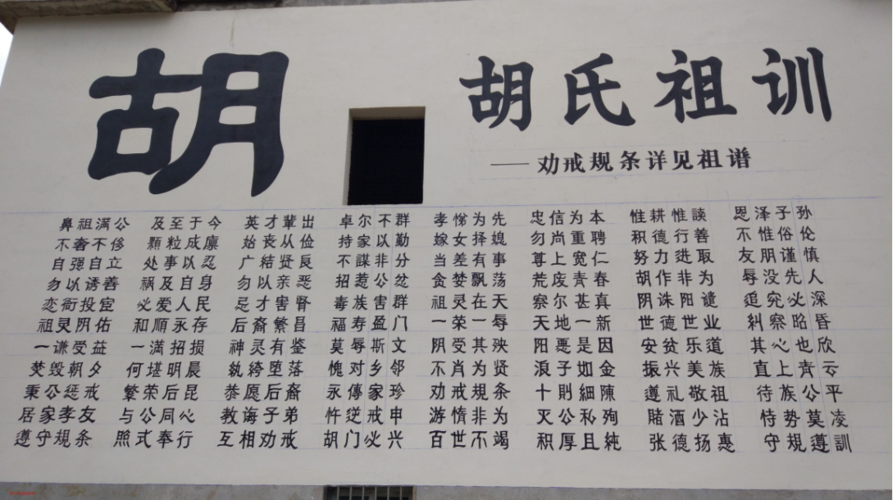 胡
胡氏祖训
——劝戒规条详见祖谱
鼻祖满公 及至于今 英才輩出 卓尔不群 孝悌为先 忠信为本 惟耕惟談 恩泽子孙
不奢不侈 颗粒成廪 始丧从俭 持家以勤 嫁女择媳 勿尚重聘 积德行善 不惟俗伦
自强自立 处事以忍 广结贤良 不謀非分 当差有事 尊上宽仁 努力进取 友朋谨慎
勿以诱善 祸及自身 勿以亲恶 招惹公忿 贪婪飘荡 荒废青春 胡作非为 辱没先人
恋衙投宦 必爱人民 忌才害肾 毒族害群 祖灵在天 察尔甚真 阴诛阳谴 追究必深
祖灵阴佑 和順永存 后裔繁昌 福寿盈门 一荣一辱 天地一新 世德世业 糾察昭昏
一谦受益 一满招损 神灵有鉴 莫辱斯文 阴受其殃 阳悪是因 安贫乐道 其心也欣
焚毁朝夕 何堪明晨 紈绔堕落 愧对乡邻 不肖为贤 浪子如金 振兴美族 直上青云
秉公惩戒 繁荣后昆 恭愿后裔 永傳家珍 劝戒规条 十則細陳 遵礼敬祖 待族公平
居家孝友 与公同心 教诲子弟 忤逆戒申 游惰非为 灭公私殉 賭酒少沾 恃势莫凌
遵守规条 照式奉行 互相劝戒 胡门必兴 百世不竭 积厚且純 张德扬惠 守規遵訓